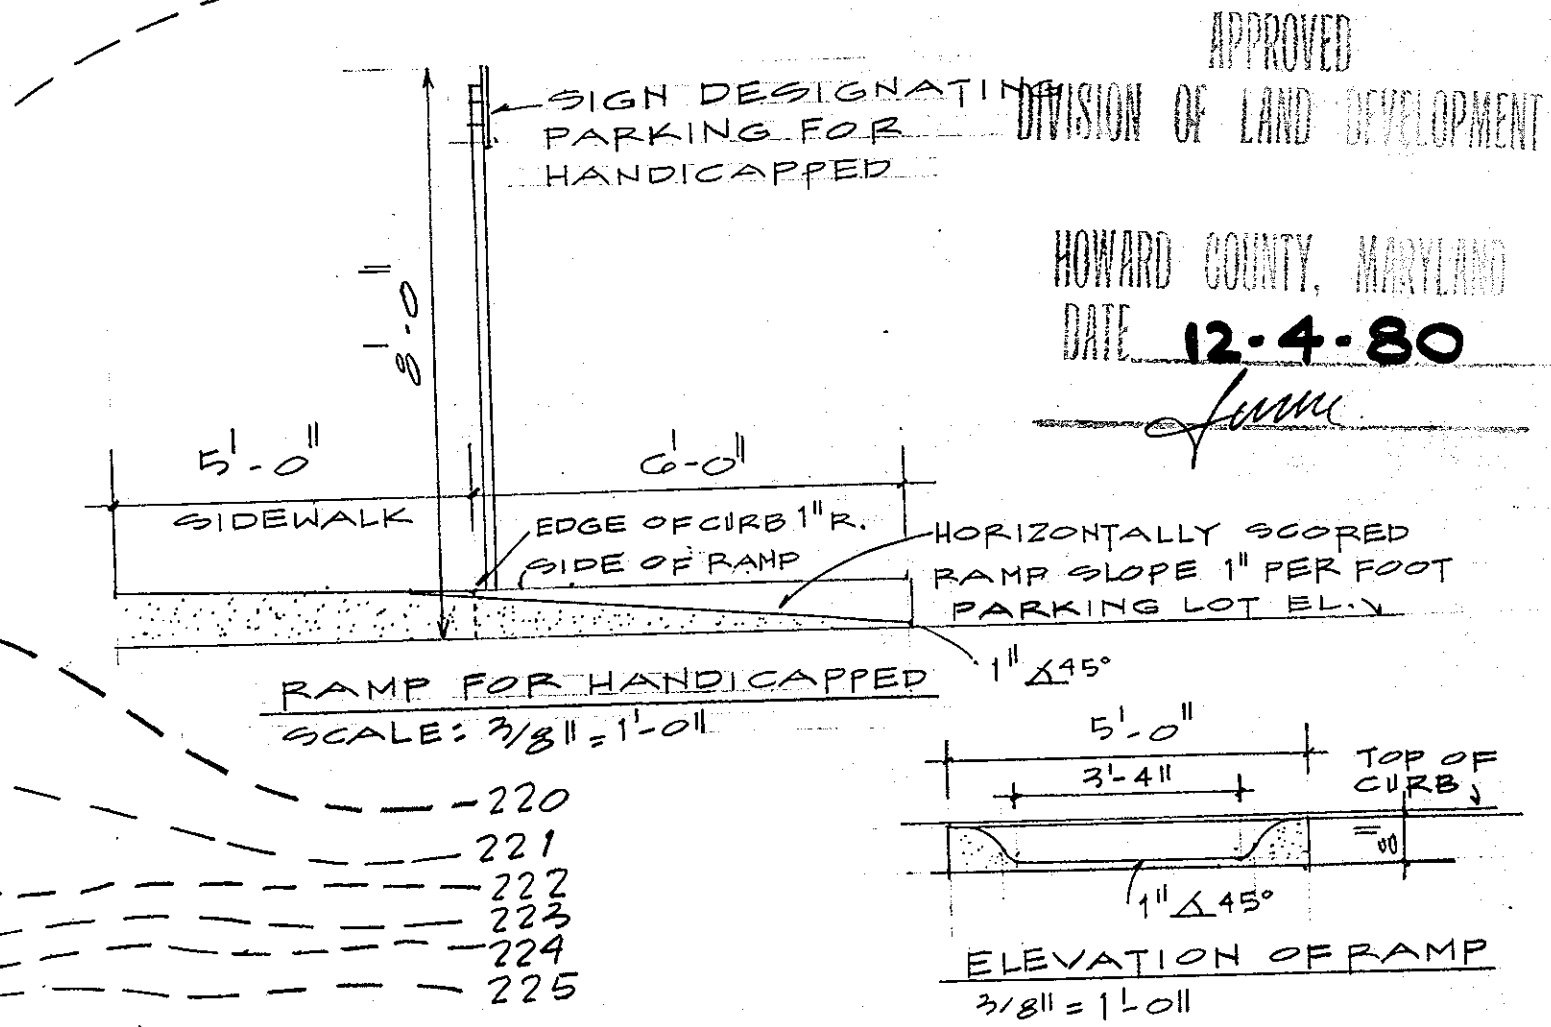 APPROVED
DIVISION OF LAND DEVELOPMENT
HOWARD COUNTY, MARYLAND
DATE 12·4·80
SIGN DESIGNATING
PARKING FOR
HANDICAPPED
8'-0"
5'-0"
6'-0"
SIDEWALK
EDGE OF CURB 1" R.
SIDE OF RAMP
HORIZONTALLY SCORED
RAMP SLOPE 1" PER FOOT
PARKING LOT EL.
1" ∡ 45°
RAMP FOR HANDICAPPED
SCALE: 3/8" = 1'-0"
5'-0"
3'-4"
TOP OF
CURB
8"
1" ∡ 45°
ELEVATION OF RAMP
3/8" = 1'-0"
220
221
222
223
224
225